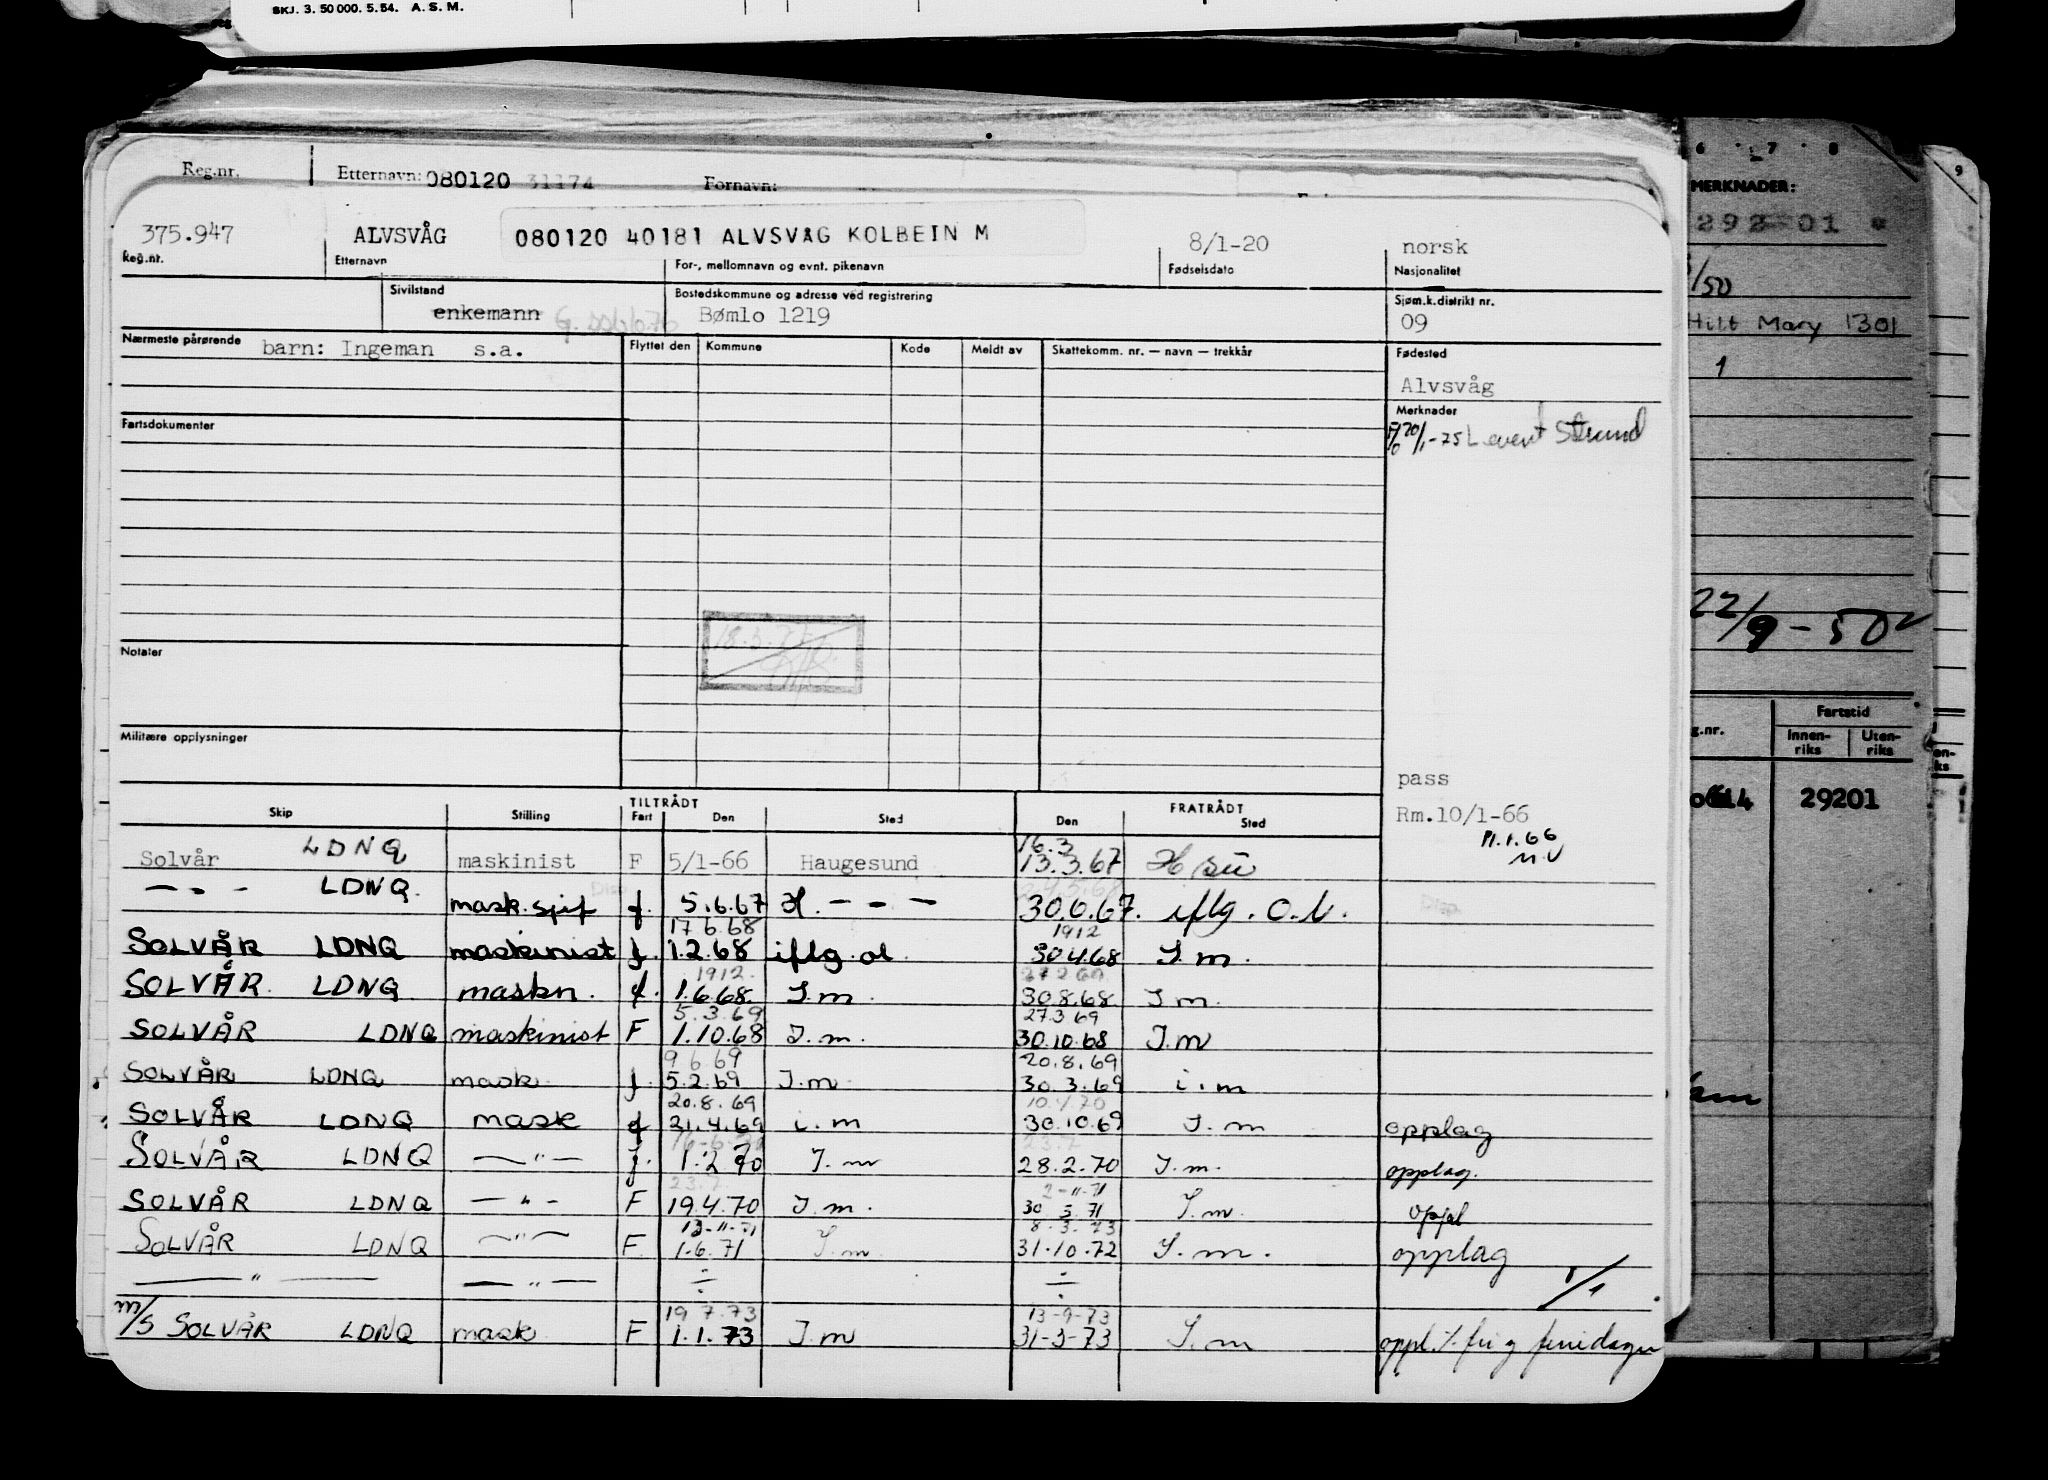 SKJ. 3. 50 000. 5. 54. A. S. M.
Reg.nr. Etternavn: 080120 31174 Fornavn:
375.947 ALVSVÅG 080120 40181 ALVSVÅG KOLBEIN M 8/1-20 norsk
Reg.nr. Etternavn For-, mellomnavn og evnt. pikenavn Fødselsdato Nasjonalitet
Sivilstand Bostedskommune og adresse ved registrering Sjøm.k.distrikt nr.
enkemann Bømlo 1219 09
Nærmeste pårørende barn: Ingeman s.a. Flyttet den Kommune Kode Meldt av Skattekomm. nr. — navn — trekkår Fødested
Alvsvåg
Merknader
Fartsdokumenter
Notater
Militære opplysninger
pass
Rm.10/1-66
11.1.66
Skip Stilling TILTRÅDT Fart Den Sted FRATRÅDT Den Sted
16.3
Solvår LDNQ maskinist F 5/1-66 Haugesund 13.3.67
— - - LDNQ. f. 5.6.67 H. - - - 30.6.67. iflg. O.l.
17 6.68 1912
SOLVÅR LDNQ maskinist f. 1.2.68 iflg. ol. 30.4.68 I.m.
1912. 27 2 69
SOLVÅR. LDNQ maskn. f. 1.6.68. I.m. 30.8.68 I m.
5.3.69 27.3 69
SOLVÅR LDNQ maskinist F 1.10.68 I.m. 30.10.68 I.m
9 6 69 20.8.69
SOLVÅR LDNQ mask f. 5.2.69 I.m 30.3.69 i.m
20.8.69 10.4.70
SOLVÅR LDNQ mask f 21.4.69 i.m 30.10.69 I.m opplag
23.7
SOLVÅR LDNQ — " — f. 1.2 70 I.m 28.2.70 I.m. opplag.
23.7 2-11-71
SOLVÅR LDNQ — " - F 19.4.70 I.m. 30.3.71 I.m.
13-11-71 8.3.73
SOLVÅR LDNQ — " — F 1.6.71 I.m 31.10.72 I.m. opplag
— " — — " — ÷ ÷ 1/1
19 7.73 13-9-73
m/s SOLVÅR LDNQ mask F 1.1.73 I.m 31-3-73 I.m
6 7 8 9
MERKNADER:
292 01
/50
Hilt Mary 1301
1
22/9-50
Fartstid
g.nr. Innen-riks Uten-riks
29201